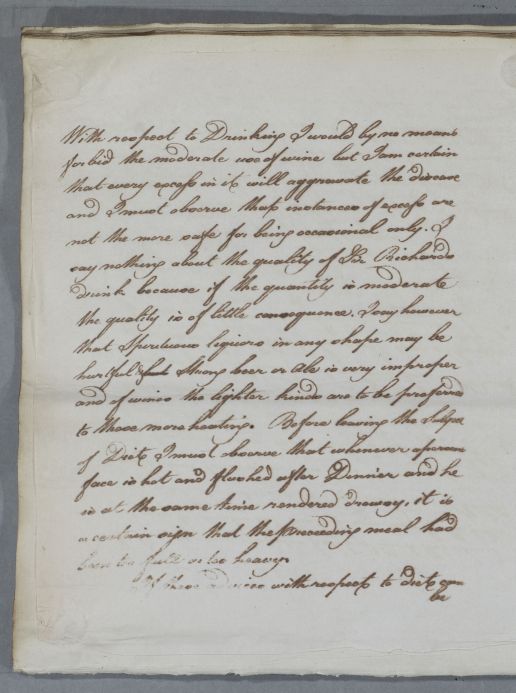 With respect to Drinking I would by no means
forbid the moderate use of wine but I am certain
that every excess in it will aggravate the disease
and I must observe that instances of excess are
not the more safe for being occasional only. I
say nothing about the quality of Sir Richards
drink because if the quantity is moderate
the quality is of little consequence. I say however
that Spirituous liquors in any shape may be
hurtful & Strong beer or Ale is very improper
and of wines the lighter kinds are to be preferred
to those more heating. Before leaving the Subject
of Diet I must observe that whenever a persons
face is hot and flushed after Dinner and he
is at the same time rendered drowsy, it is
a certain sign that the Preceeding meal had
been too full or too heavy.
If these advices with respect to diet can
be